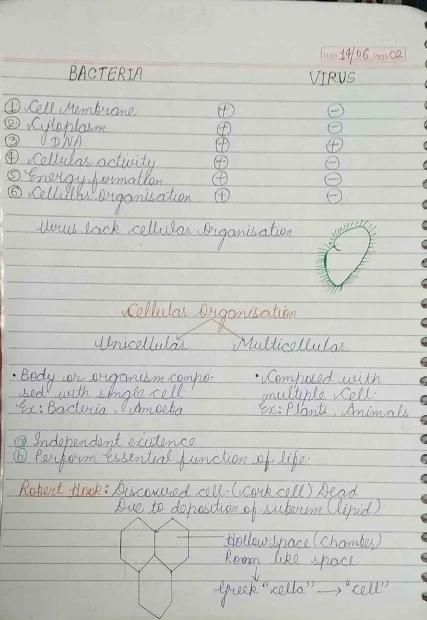 Date 14/06 Page 02
BACTERIA VIRUS
① Cell Membrane + -
② Cytoplasm + -
③ DNA + +
④ Cellular activity + -
⑤ Energy formation + -
⑥ Cellular Organisation + -
Virus lack cellular Organisation
Cellular Organisation
Unicellular Multicellular
• Body or organism compo- • Composed with
sed with single cell multiple Cell.
Ex: Bacteria, Amoeba Ex: Plants, Animals
ⓐ Independent existence
ⓑ Perform Essential function of life.
Robert Hook: Discovered cell (cork cell) Dead
Due to deposition of suberin (lipid)
Hollow space (Chamber)
Room like space
Greek "cella" → "cell"